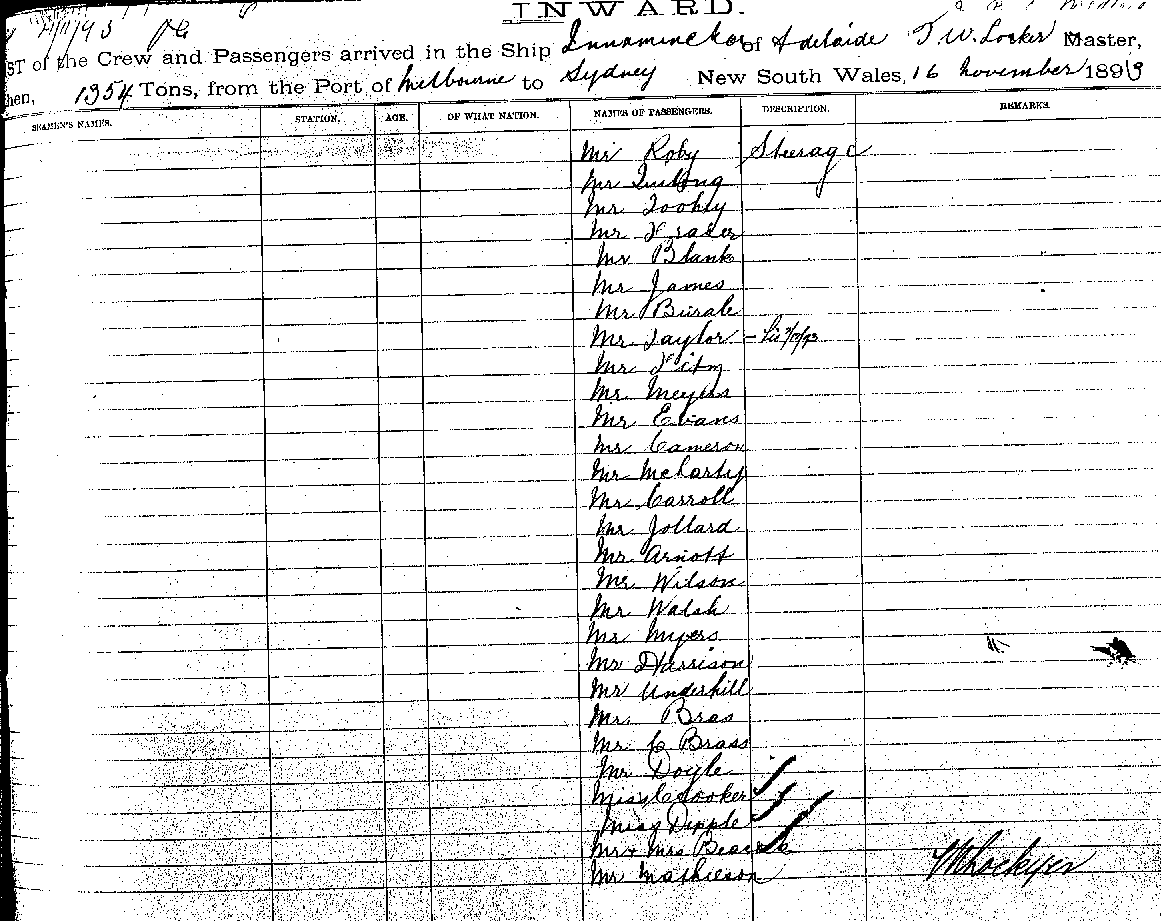 INWARD.
of the Crew and Passengers arrived in the Ship Innamincka of Adelaide Master,
1354 Tons, from the Port of Melbourne to Sydney New South Wales, 16 November 1893
SEAMEN'S NAMES. STATION. AGE. OF WHAT NATION. NAMES OF PASSENGERS. DESCRIPTION. REMARKS.
Mr Roby Steerage
Mr
Mr Toohey
Mr Fraser
Mr Blank
Mr James
Mr
Mr Taylor
Mr
Mr Meyers
Mr Evans
Mr Cameron
Mr McCarty
Mr Carroll
Mr Jollard
Mr Arnott
Mr Wilson
Mr Walsh
Mr Myers
Mr Harrison
Mr Underhill
Mr Bras
Mr C Brass
Mr Doyle
Miss
Miss Dipple
Mr & Mrs
Mr Mathieson